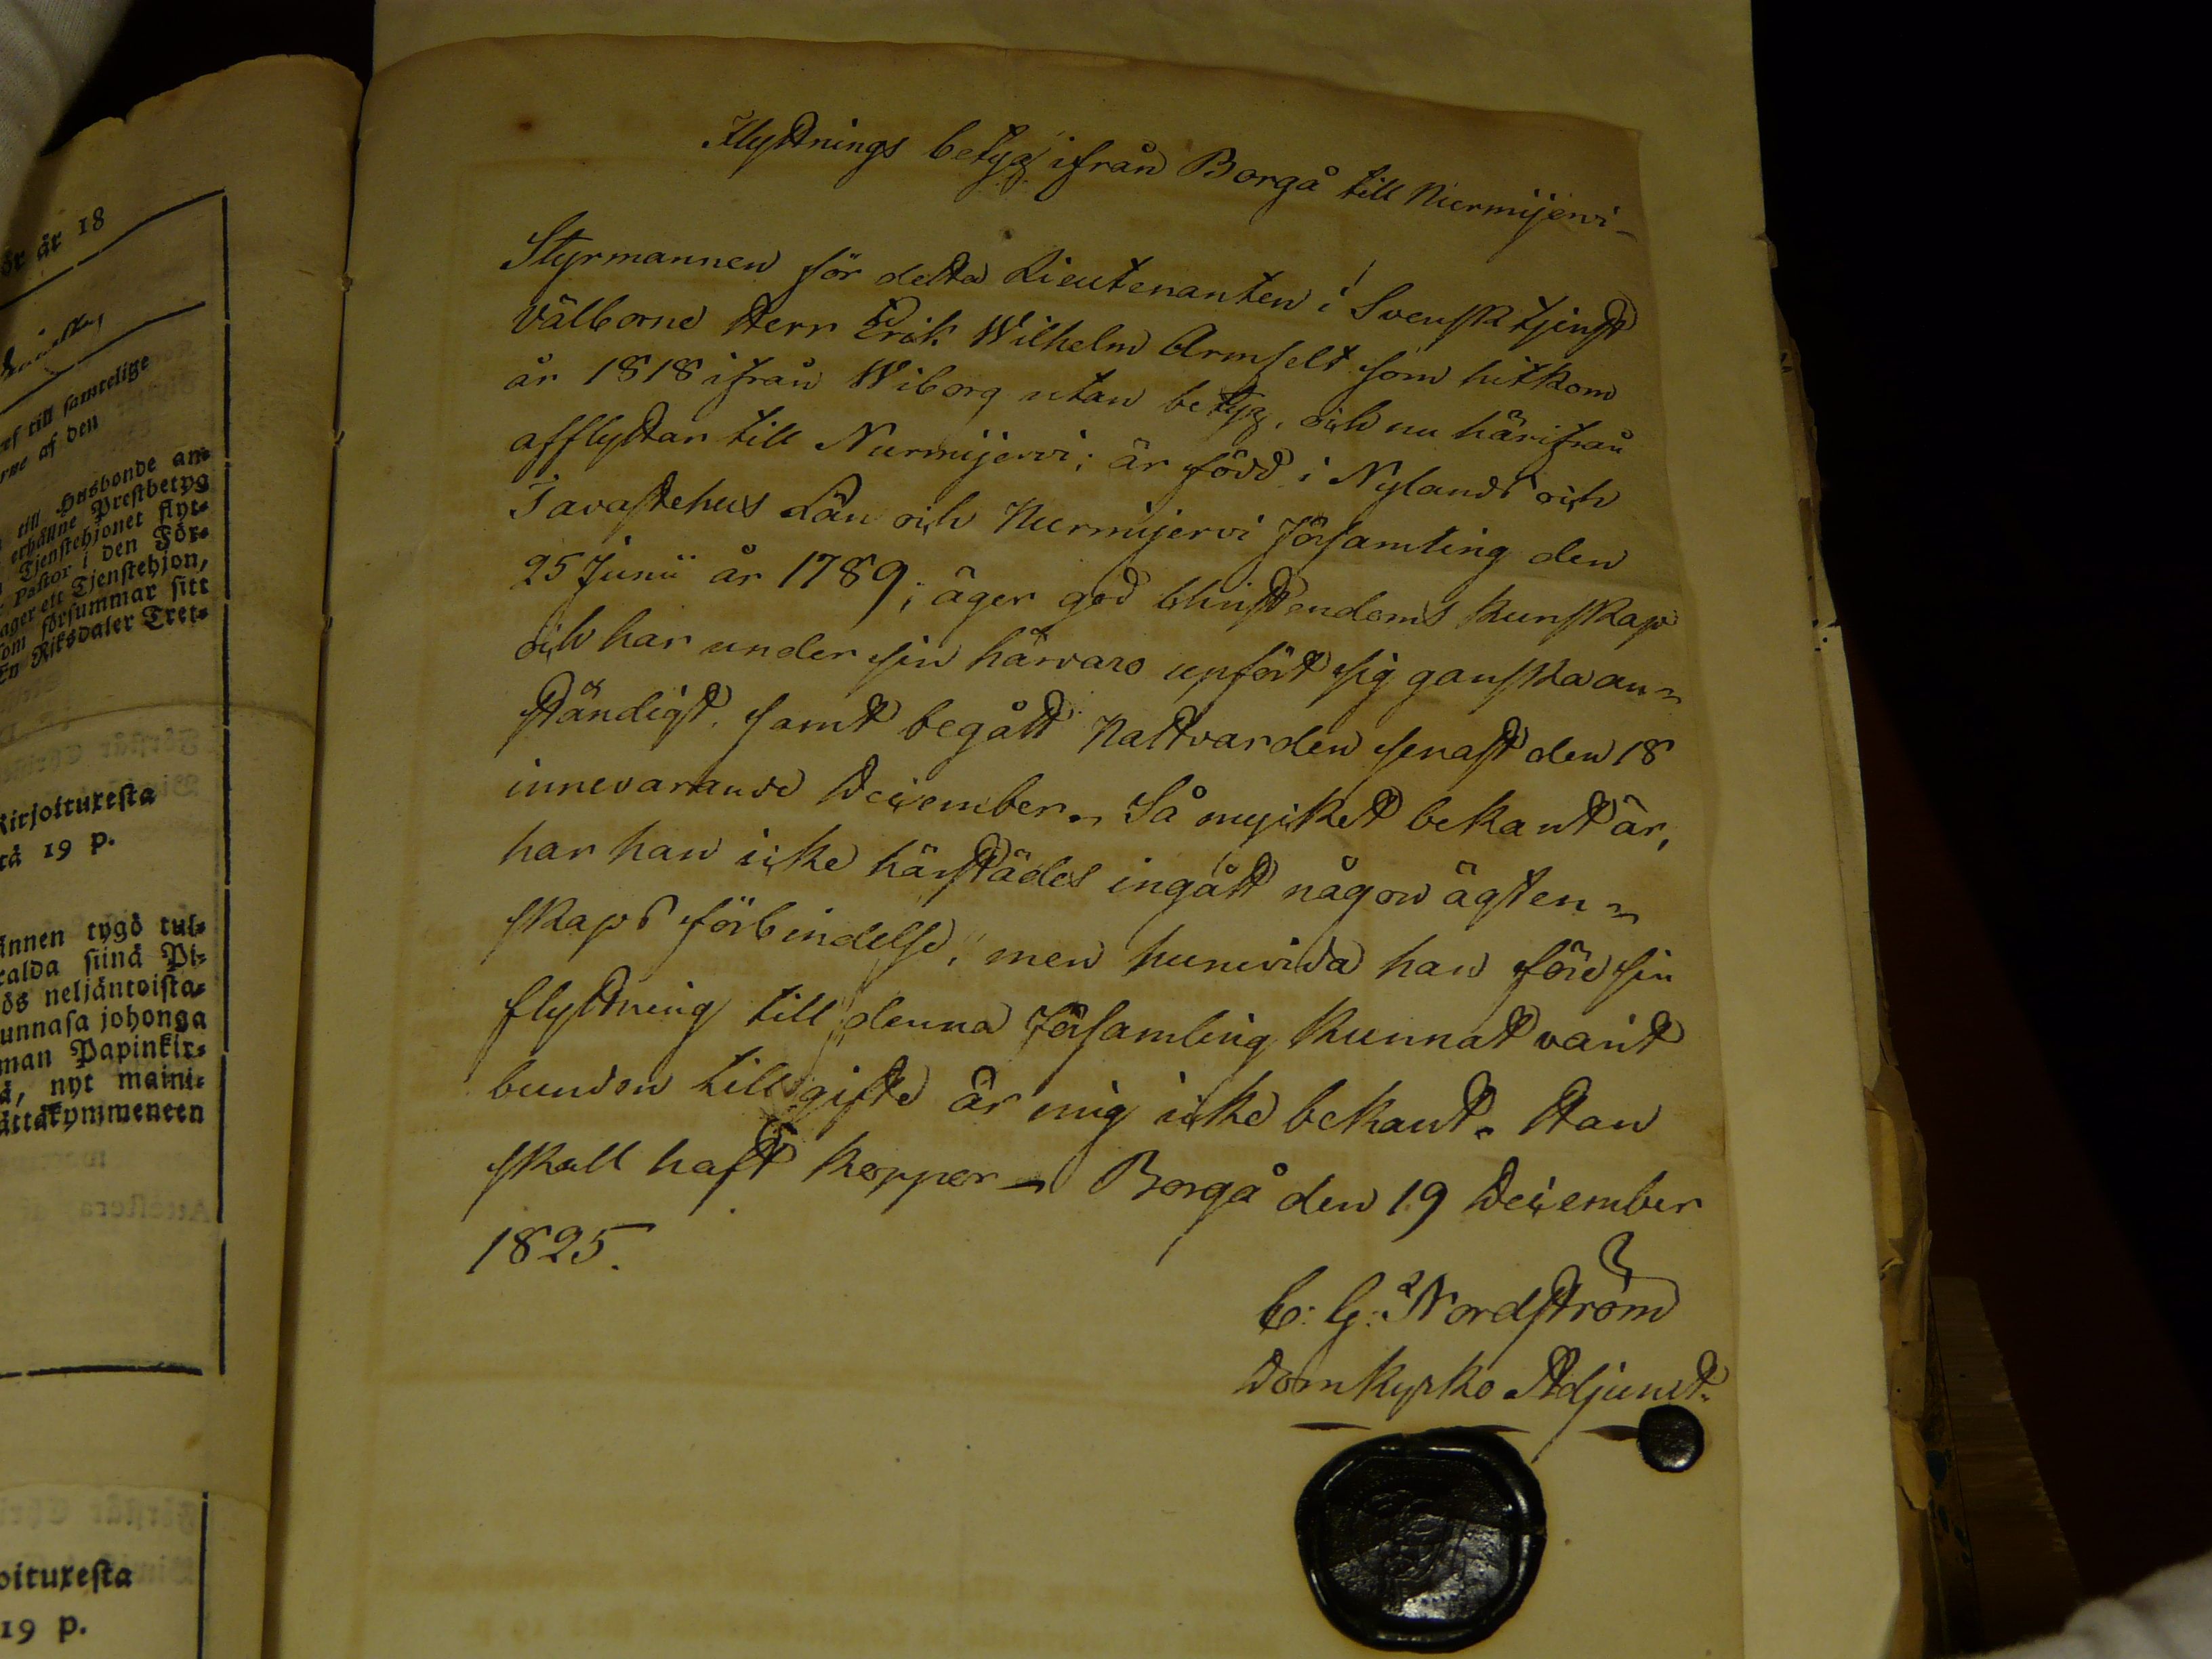 ör år 18
ref till samtelige
rne af den
till Husbonde an-
erhållne Prestbetyg
Tjenstehjonet flyt-
Pastor i den För-
ager ett Tjenstehjon,
som försummar sitt
En Riksdaler Tret-
Kirjoituxesta
tä 19 p.
ännen tygö tul-
talda siinä Pi-
ös neljäntoista-
unnasa johonga
man Papinkir-
ä, nyt maini-
ättäkymmeneen
oituxesta
19 p.
Flyttnings betyg ifrån Borgå till Nurmijervi_
Styrmannen för detta Lieutenanten i Svensk tjenst
Välborne Herr Erik Wilhelm Armfelt som hitkom
år 1818 ifrån Wiborg utan betyg, och nu härifrån
afflyttar till Nurmijervi; är född i Nylands och
Tavastehus Län och Nurmijervi Församling den
25 Junii år 1789; äger god Christendoms kunskap
och har under sin härvaro upfört sig ganska an-
ständigt, samt begått Nattvarden senast den 18
innevarande December. Så mycket bekant är,
har han icke härstädes ingått någon ägten-
skaps förbindelse, men huruvida han före sin
flyttning till denna Församling kunnat varit
bunden till gifte är mig icke bekant. Han
skall haft koppor_ Borgå den 19 December
1825.
C: G: Nordström
Domkyrko Adjunct.